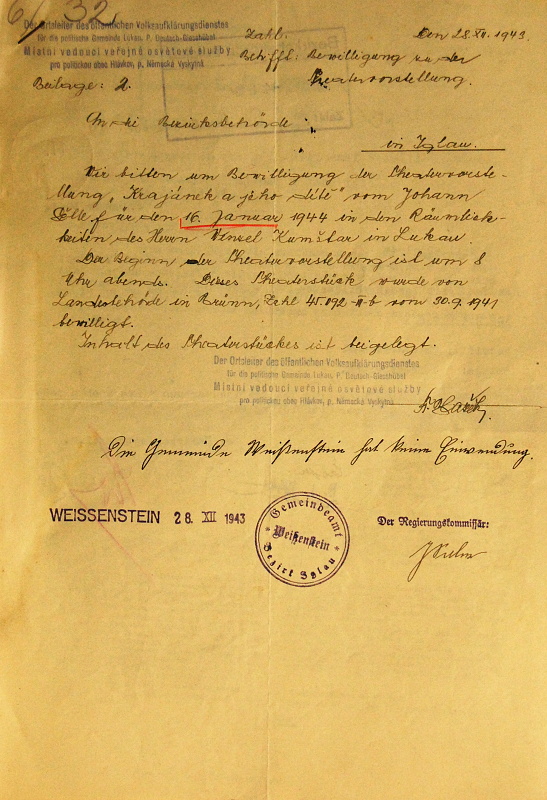 6/32
Der Ortsleiter des öffentlichen Volksaufklärungsdienstes
für die politische Gemeinde Lukau, P. Deutsch-Giesshübel
Místní vedoucí veřejné osvětové služby
pro politickou obec Hlávkov, p. Německé Vyskytná
Zahl:
Den 28.XII. 1943.
Betrifft: Bewilligung zu der
Theatervorstellung.
Beilage: 2.
An die Bezirksbehörde
in Iglau.
Wir bitten um Bewilligung der Theatervorste-
llung „Krajánek a jeho děti" vom Johann
für den 16. Januar 1944 in den Räumlich-
keiten des Herrn Wenzel Kumštar in Lukau.
Der Beginn der Theatervorstellung ist um 8
Uhr abends. Dieses Theaterstück wurde von
Landesbehörde in Brünn, Zahl 45.092-II-b vom 30.9.1941
bewilligt.
Inhalt des Theaterstückes ist beigelegt.
Der Ortsleiter des öffentlichen Volksaufklärungsdienstes
für die politische Gemeinde Lukau, P. Deutsch-Giesshübel
Místní vedoucí veřejné osvětové služby
pro politickou obec Hlávkov, p. Německé Vyskytná
Die Gemeinde Weißenstein hat keine Einwendung.
WEISSENSTEIN 28 XII 1943
Gemeindeamt
Weißenstein
Bezirk Iglau
Der Regierungskommissär: